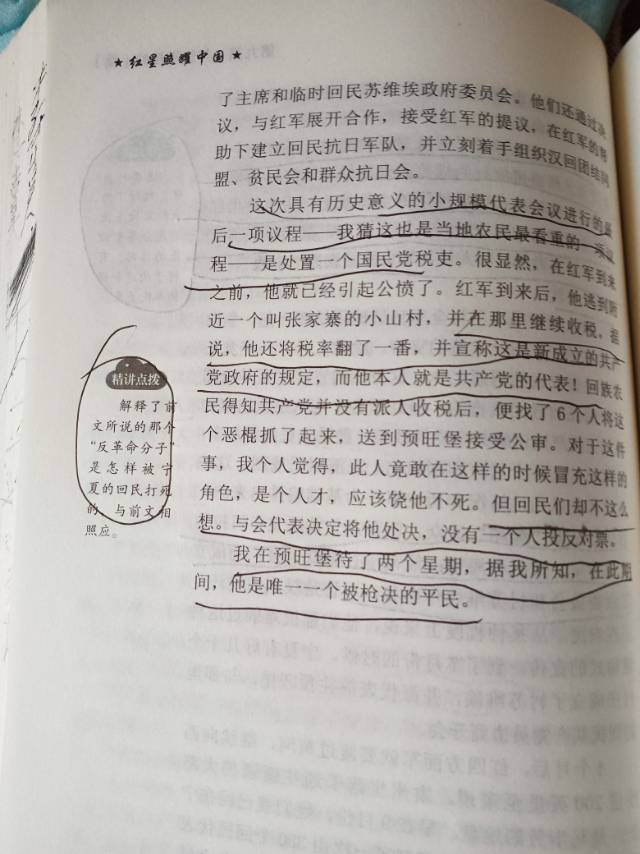 ★红星照耀中国★
了主席和临时回民苏维埃政府委员会。他们还通过决
议，与红军展开合作，接受红军的提议，在红军的帮
助下建立回民抗日军队，并立刻着手组织汉回团结同
盟、贫民会和群众抗日会。
这次具有历史意义的小规模代表会议进行的最
后一项议程——我猜这也是当地农民最看重的一项议
程——是处置一个国民党税吏。很显然，在红军到来
之前，他就已经引起公愤了。红军到来后，他逃到附
近一个叫张家寨的小山村，并在那里继续收税。据
说，他还将税率翻了一番，并宣称这是新成立的共产
党政府的规定，而他本人就是共产党的代表！回族农
民得知共产党并没有派人收税后，便找了6个人将这
个恶棍抓了起来，送到预旺堡接受公审。对于这件
事，我个人觉得，此人竟敢在这样的时候冒充这样的
角色，是个人才，应该饶他不死。但回民们却不这么
想。与会代表决定将他处决，没有一个人投反对票。
我在预旺堡待了两个星期，据我所知，在此期
间，他是唯一一个被枪决的平民。
精讲点拨
解释了前
文所说的那个
“反革命分子”
是怎样被宁
夏的回民打死
的，与前文相
照应。